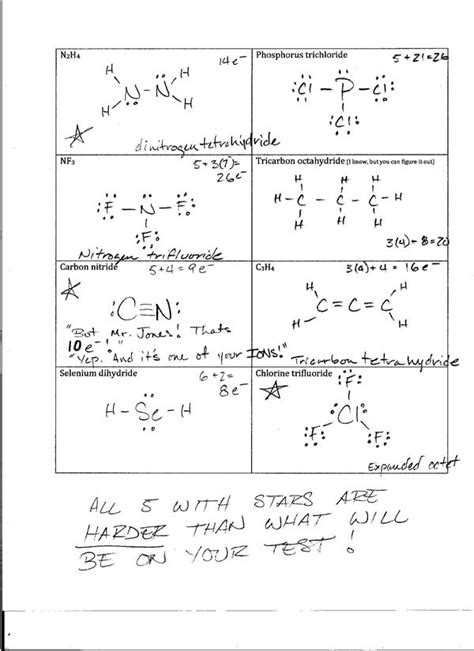 N₂H₄ 14e⁻
H H
N-N
H H
dinitrogen tetrahydride
Phosphorus trichloride 5+21=26
:Cl - P - Cl:
:Cl:
NF₃ 5+3(7)=
26e⁻
:F - N - F:
:F:
Nitrogen trifluoride
Tricarbon octahydride (I know, but you can figure it out)
H H H
H-C - C - C-H
H H H
3(4)+8=20
Carbon nitride 5+4=9e⁻
:C≡N:
"But Mr. Jones! Thats
10e⁻!"
"Yep. And it's one of your IONS!"
C₃H₄ 3(4)+4=16e⁻
H H
C=C=C
H H
Tricarbon tetrahydride
Selenium dihydride 6+2=
8e⁻
H-Se-H
Chlorine trifluoride
:F:
:Cl:
:F: :F:
Expanded octet
ALL 5 WITH STARS ARE
HARDER THAN WHAT WILL
BE ON YOUR TEST!